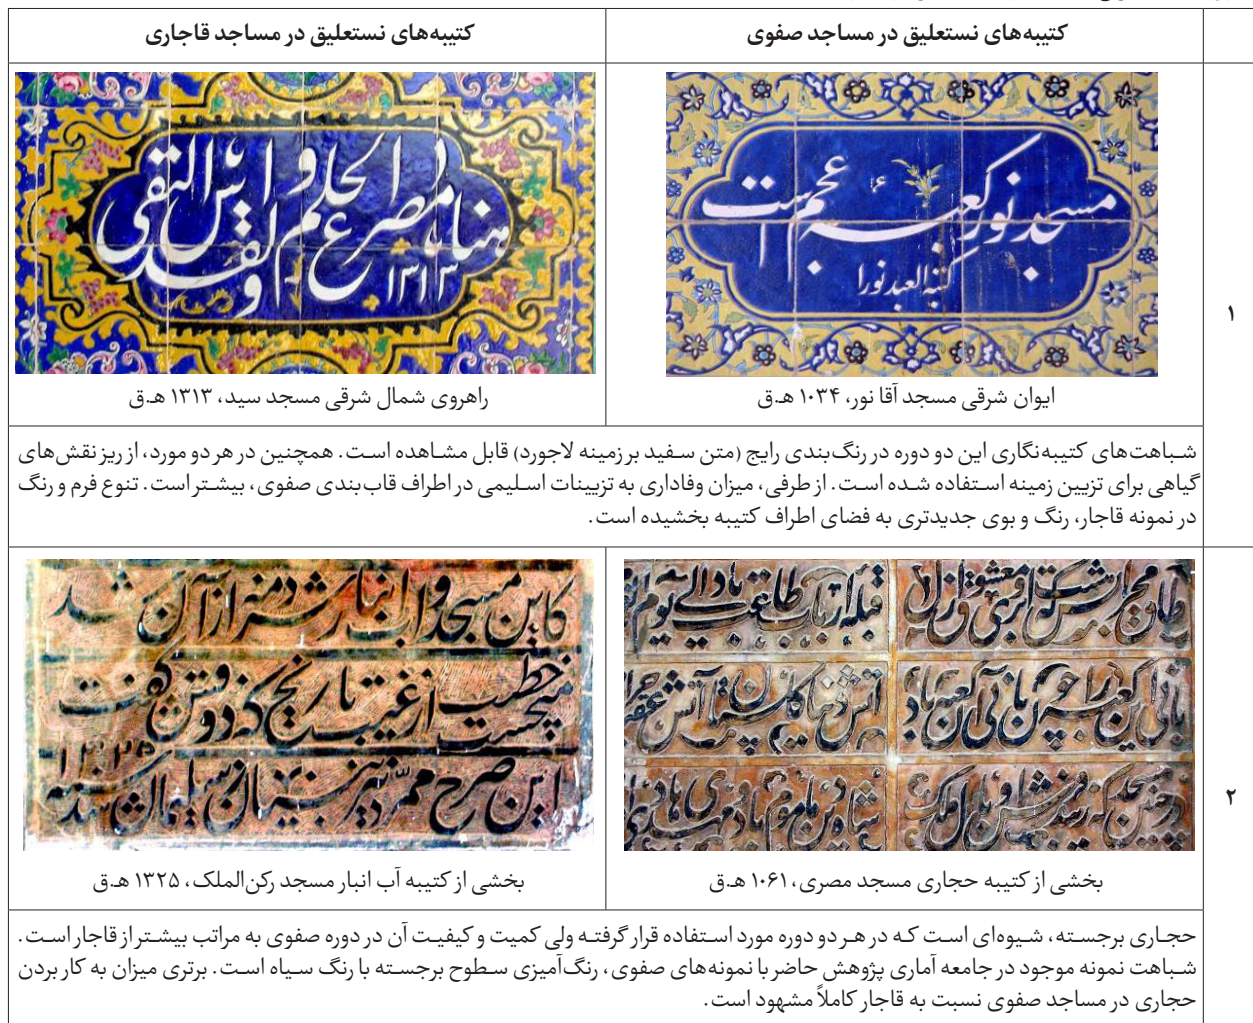 کتیبه‌های نستعلیق در مساجد صفوی
کتیبه‌های نستعلیق در مساجد قاجاری
۱
مسجد نور کعبه عجم است
کتبه العبد نورا
هناها مصرع الحلم و این التقی
والقد
۱۳۱۳
ایوان شرقی مسجد آقا نور، ۱۰۳۴ هـ.ق
راهروی شمال شرقی مسجد سید، ۱۳۱۳ هـ.ق
شباهت‌های کتیبه‌نگاری این دو دوره در رنگ‌بندی رایج (متن سفید بر زمینه لاجورد) قابل مشاهده است. همچنین در هر دو مورد، از ریز نقش‌های
گیاهی برای تزیین زمینه استفاده شده است. از طرفی، میزان وفاداری به تزیینات اسلیمی در اطراف قاب‌بندی صفوی، بیشتر است. تنوع فرم و رنگ
در نمونه قاجار، رنگ و بوی جدیدتری به فضای اطراف کتیبه بخشیده است.
۲
بانی این کعبه را چون بانی آن کعبه باد
کاین مسجد و آب انبار
از آن شد
از غیب تاریخ که دوش گفت
۱۳۲۵
این صرح ممرد نیز بنیان ز سلیمان شد
بخشی از کتیبه حجاری مسجد مصری، ۱۰۶۱ هـ.ق
بخشی از کتیبه آب انبار مسجد رکن‌الملک، ۱۳۲۵ هـ.ق
حجاری برجسته، شیوه‌ای است که در هر دو دوره مورد استفاده قرار گرفته ولی کمیت و کیفیت آن در دوره صفوی به مراتب بیشتر از قاجار است.
شباهت نمونه موجود در جامعه آماری پژوهش حاضر با نمونه‌های صفوی، رنگ‌آمیزی سطوح برجسته با رنگ سیاه است. برتری میزان به کار بردن
حجاری در مساجد صفوی نسبت به قاجار کاملاً مشهود است.